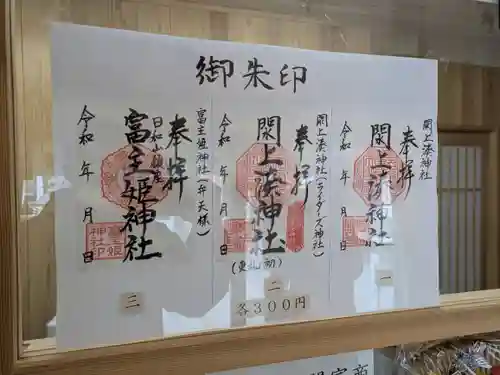 御朱印
閖上湊神社
奉拝
閖上湊神社
令和 年 月 日
一
閖上湊神社(ライダーズ神社)
奉拝
閖上湊神社
令和 年 月 日
(東北初)
二
富主姫神社(弁天様)
奉拝
日和山鎮座
富主姫神社
富主姫
神社印
令和 年 月 日
三
各300円